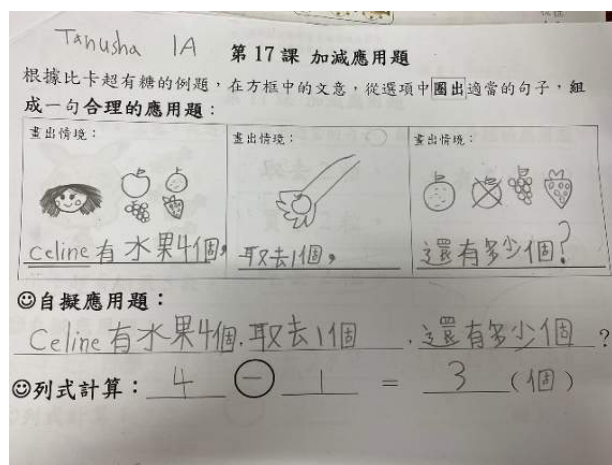 Tanusha 1A
第 17 課 加減應用題
根據比卡超有糖的例題，在方框中的文意，從選項中圈出適當的句子，組
成一句合理的應用題：
畫出情境：
Celine有水果4個，
畫出情境：
取去1個，
畫出情境：
還有多少個？
☺自擬應用題：
Celine有水果4個.取去1個.還有多少個？
☺列式計算：4 － 1 = 3 (個)